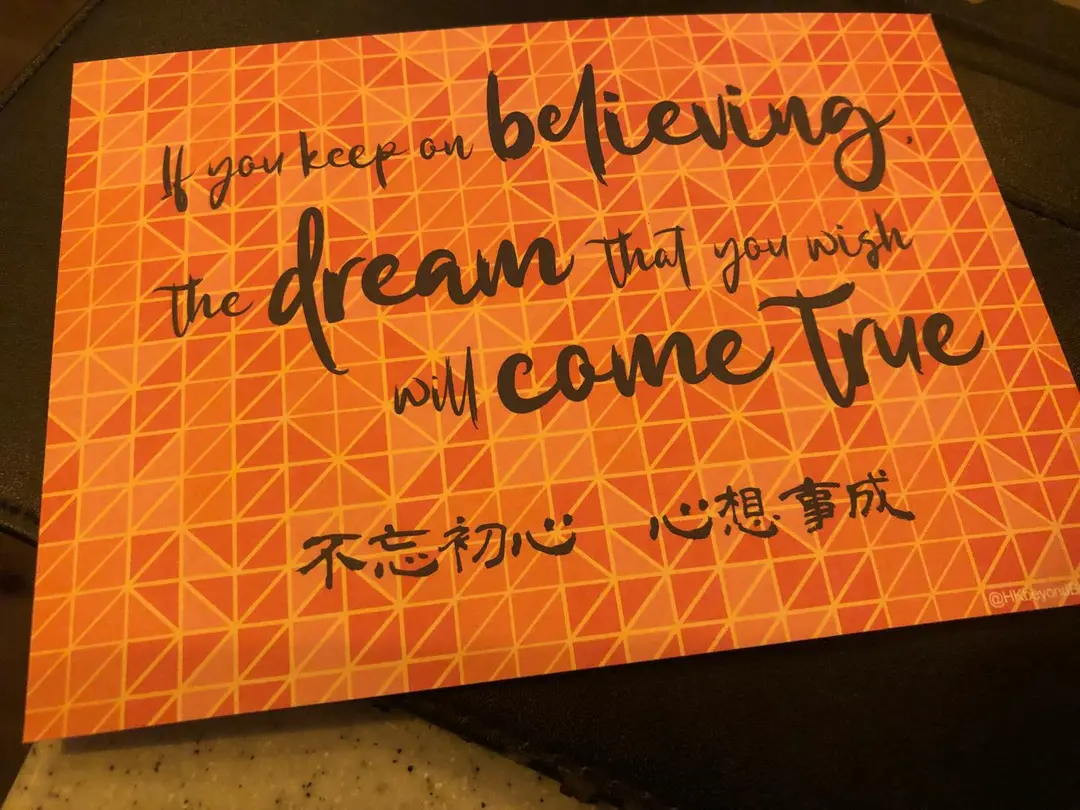 If you keep on believing,
the dream that you wish
will come True
不忘初心 心想事成